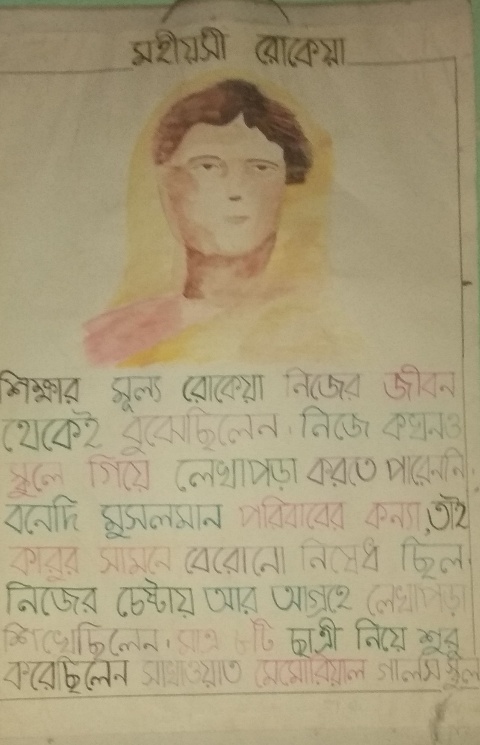 মহীয়সী রোকেয়া
শিক্ষার মূল্য রোকেয়া নিজের জীবন
থেকেই বুঝেছিলেন। নিজে কখনও
স্কুলে গিয়ে লেখাপড়া করতে পারেননি।
বনেদি মুসলমান পরিবারের কন্যা, তাই
কারুর সামনে বেরোনো নিষেধ ছিল।
নিজের চেষ্টায় আর আগ্রহে লেখাপড়া
শিখেছিলেন। মাত্র ৮টি ছাত্রী নিয়ে শুরু
করেছিলেন সাখাওয়াত মেমোরিয়াল গার্লস স্কুল